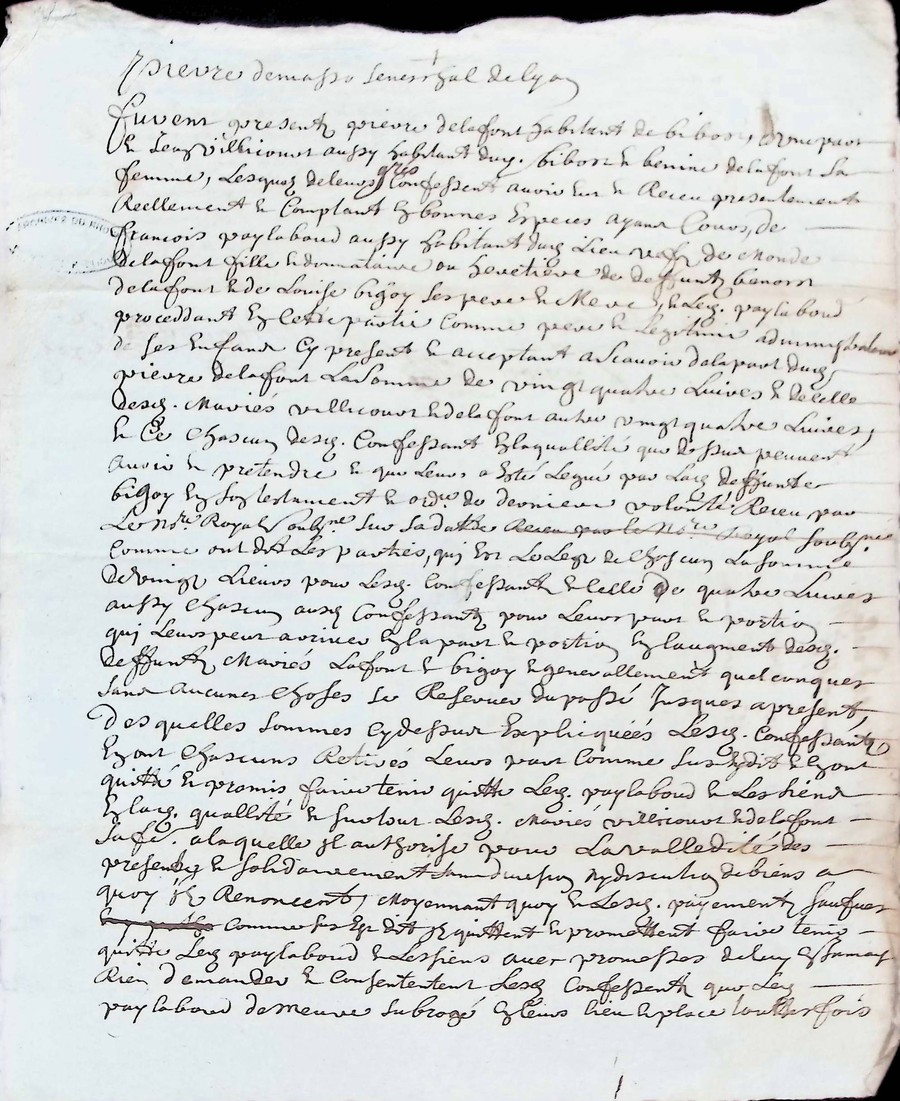 pierre demasso seneschal de lyon
furent presents pierre delafont habitant de bibost, d'une part
et Jean Villicourt aussy habitant dud. bibost et benine delafont sa
femme, Lesquels de leurs grés Confessent avoir eu et Receu presentement
Reellement et Comptant en bonnes Especes ayant Cours, de
francois paylaboud aussy habitant dud Lieu vefz de
delafont fille et donnataire ou heretiere de deffuntz benoist
delafont et de Louise bigoy ses pere et Mere, et Led. paylaboud
proceddant En cete partie Comme pere et Legitime administrateur
de ses Enfants Cy present et acceptant a Scavoir de la part dud
pierre delafont La Somme de vingt quatre Livres et de celle
desd. Mariés villicourt et delafont autre vingt quatre Livres,
et Ce Chascun desd. Confessant En la quallité que dessus peuvent
avoir et pretendre et que Leurs a Esté Legué par Lad deffunte
bigoy En son testament et ord.re de derniere volonté Receu par
Le No.re Royal Soub.ne Sur Sa datte Receu par le No.re Royal Soub.ne
Comme ont dit Les parties, qui Est Le Legz de Chascun La Somme
de vingt Livres pour Lesd. Confessants et Celle De quatre Livres
aussy Chascun ausd Confessants pour Leurs part et portion
qui Leurs peut arriver En la part et portion En l'augment desd.
deffuntz Mariés Lafont et bigoy et generallement quelconques
sans aucunes Choses se Reserver du passé Jusques a present,
Desquelles sommes Cy dessus Expliquéés Lesd. Confessants
En ont Chascuns Retirés Leurs part Comme Sus Est dit et En ont
quitté et promis faire tenir quitte Led. paylaboud et Les siens
En lad. quallité et surtout Lesd. Mariés villicourt et delafont
Sa fe. a laquelle Il authorise pour La vallidité des
presentes et Solidairement Sans division ny discution de biens a
quoy Ils Renoncent, Moyennant quoy et Lesd. payements faictes
Comme sus Est dit Ils quittent et promettent faire tenir
quitte Led paylaboud et Les siens avec promesses de Luy En Jamais
Rien demander et Consentent Lesd Confessents que Led
paylaboud demeure subrogé En Leurs lieu et place touttes fois